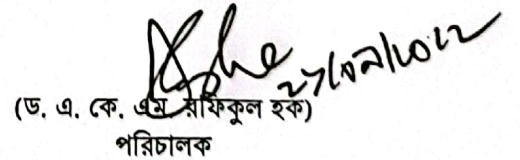 ২৭/০২/২০২২
(ড. এ. কে. এম রফিকুল হক)
পরিচালক